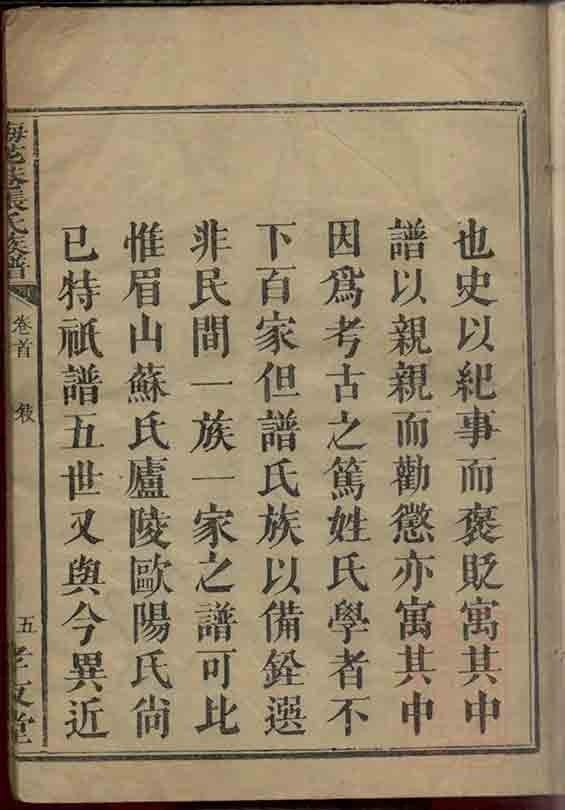 也史以紀事而褒貶寓其中
譜以親親而勸懲亦寓其中
因爲考古之篤姓氏學者不
下百家但譜氏族以備銓選
非民間一族一家之譜可比
惟眉山蘇氏廬陵歐陽氏尙
已特祇譜五世又與今異近
張氏族譜
卷首
敘
五
堂